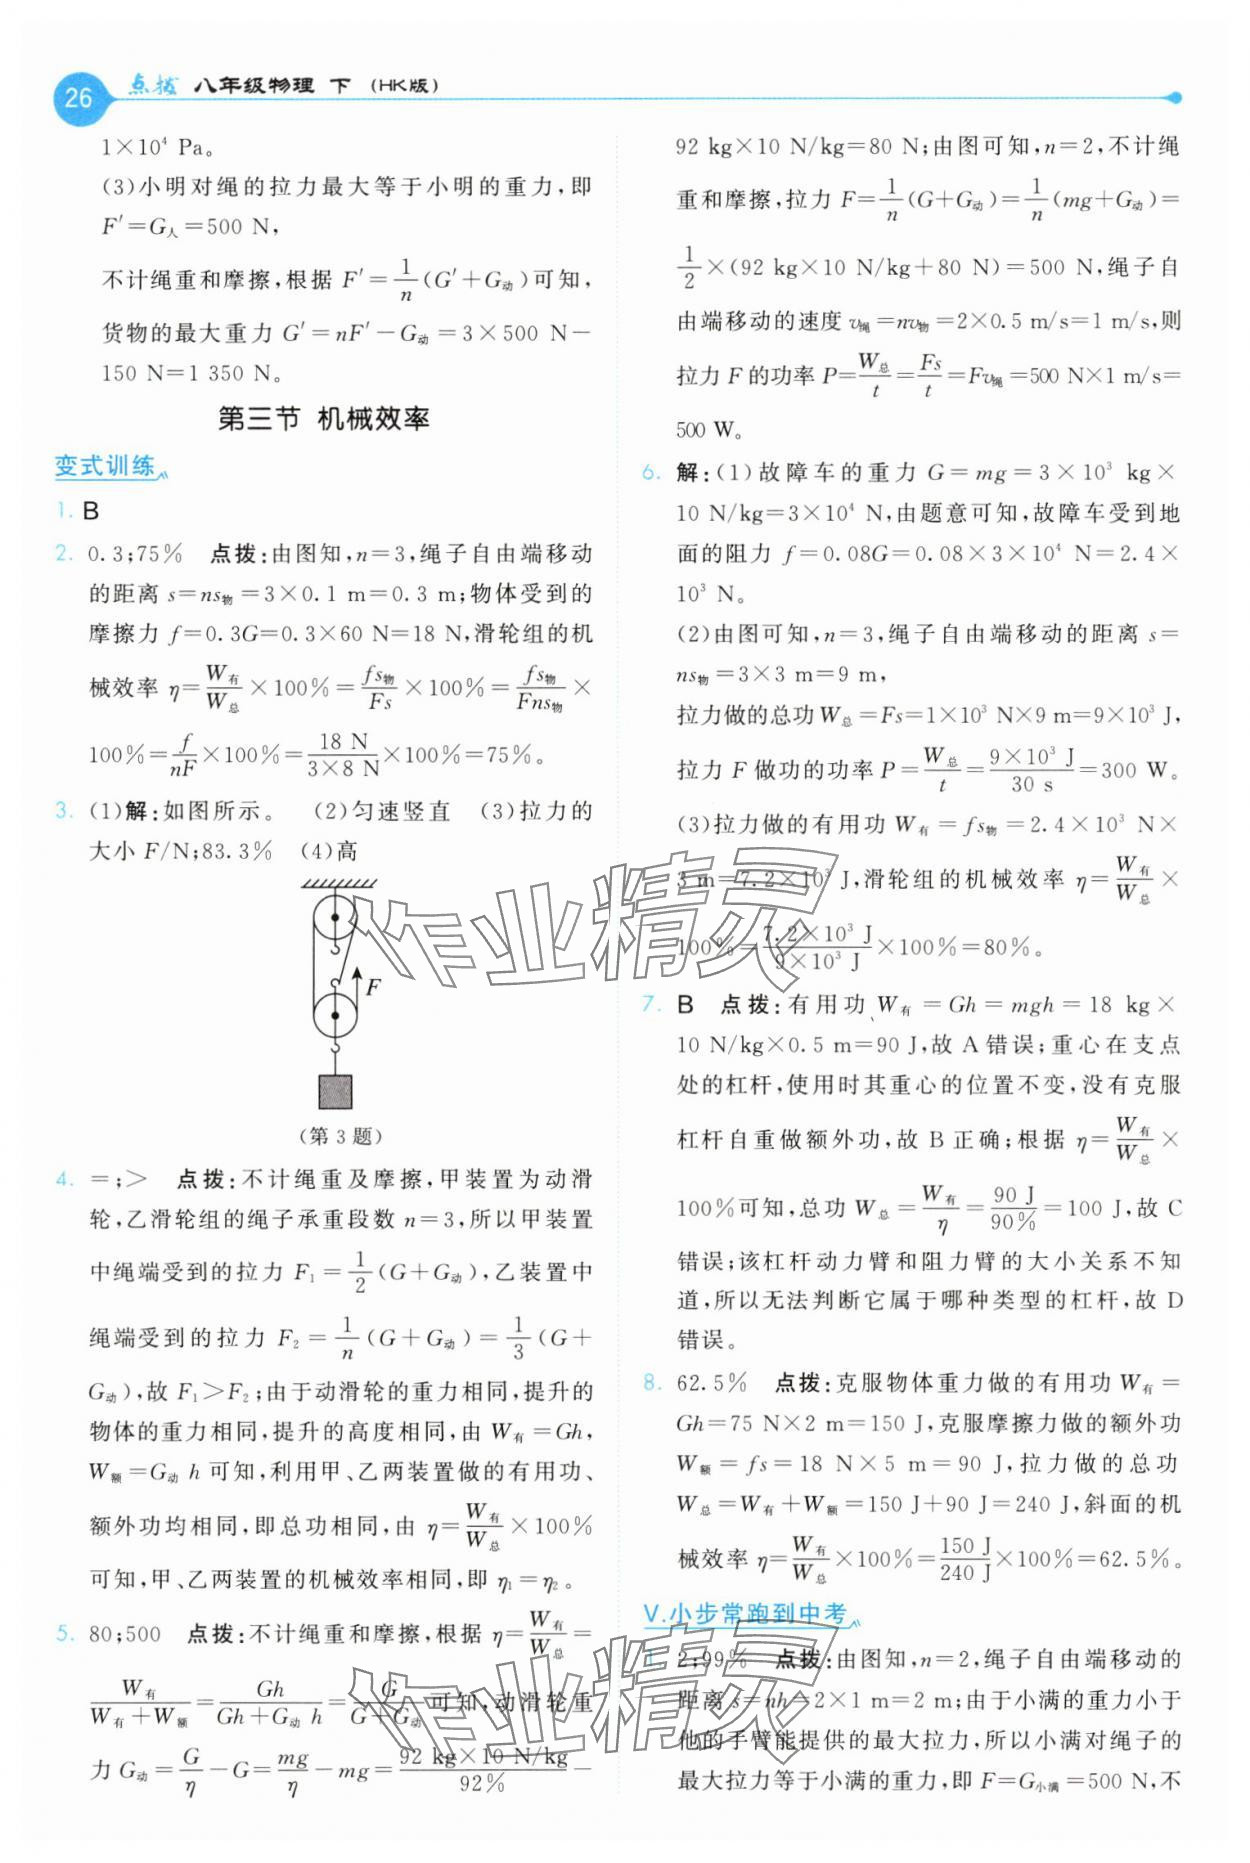 26 点拨 八年级物理 下 (HK版)
1×10⁴ Pa。
(3)小明对绳的拉力最大等于小明的重力,即
F′=G人=500 N,
不计绳重和摩擦,根据 F′=1/n(G′+G动)可知,
货物的最大重力 G′=nF′-G动=3×500 N-
150 N=1 350 N。
第三节 机械效率
变式训练
1. B
2. 0.3;75% 点拨:由图知,n=3,绳子自由端移动
的距离 s=ns物=3×0.1 m=0.3 m;物体受到的
摩擦力 f=0.3G=0.3×60 N=18 N,滑轮组的机
械效率 η=W有/W总×100%=fs物/Fs×100%=fs物/Fns物×
100%=f/nF×100%=18 N/(3×8 N)×100%=75%。
3. (1)解:如图所示。 (2)匀速竖直 (3)拉力的
大小 F/N;83.3% (4)高
F
(第 3 题)
4. =;> 点拨:不计绳重及摩擦,甲装置为动滑
轮,乙滑轮组的绳子承重段数 n=3,所以甲装置
中绳端受到的拉力 F₁=1/2(G+G动),乙装置中
绳端受到的拉力 F₂=1/n(G+G动)=1/3(G+
G动),故 F₁>F₂;由于动滑轮的重力相同,提升的
物体的重力相同,提升的高度相同,由 W有=Gh,
W额=G动 h 可知,利用甲、乙两装置做的有用功、
额外功均相同,即总功相同,由 η=W有/W总×100%
可知,甲、乙两装置的机械效率相同,即 η₁=η₂。
5. 80;500 点拨:不计绳重和摩擦,根据 η=W有/W总=
W有/(W有+W额)=Gh/(Gh+G动 h)=G/(G+G动)可知,动滑轮重
力 G动=G/η-G=mg/η-mg=(92 kg×10 N/kg)/92%-
92 kg×10 N/kg=80 N;由图可知,n=2,不计绳
重和摩擦,拉力 F=1/n(G+G动)=1/n(mg+G动)=
1/2×(92 kg×10 N/kg+80 N)=500 N,绳子自
由端移动的速度 v绳=nv物=2×0.5 m/s=1 m/s,则
拉力 F 的功率 P=W总/t=Fs/t=Fv绳=500 N×1 m/s=
500 W。
6. 解:(1)故障车的重力 G=mg=3×10³ kg×
10 N/kg=3×10⁴ N,由题意可知,故障车受到地
面的阻力 f=0.08G=0.08×3×10⁴ N=2.4×
10³ N。
(2)由图可知,n=3,绳子自由端移动的距离 s=
ns物=3×3 m=9 m,
拉力做的总功 W总=Fs=1×10³ N×9 m=9×10³ J,
拉力 F 做功的功率 P=W总/t=(9×10³ J)/(30 s)=300 W。
(3)拉力做的有用功 W有=fs物=2.4×10³ N×
3 m=7.2×10³ J,滑轮组的机械效率 η=W有/W总×
100%=(7.2×10³ J)/(9×10³ J)×100%=80%。
7. B 点拨:有用功 W有=Gh=mgh=18 kg×
10 N/kg×0.5 m=90 J,故 A 错误;重心在支点
处的杠杆,使用时其重心的位置不变,没有克服
杠杆自重做额外功,故 B 正确;根据 η=W有/W总×
100%可知,总功 W总=W有/η=90 J/90%=100 J,故 C
错误;该杠杆动力臂和阻力臂的大小关系不知
道,所以无法判断它属于哪种类型的杠杆,故 D
错误。
8. 62.5% 点拨:克服物体重力做的有用功 W有=
Gh=75 N×2 m=150 J,克服摩擦力做的额外功
W额=fs=18 N×5 m=90 J,拉力做的总功
W总=W有+W额=150 J+90 J=240 J,斜面的机
械效率 η=W有/W总×100%=150 J/240 J×100%=62.5%。
V.小步常跑到中考
1. 2;99% 点拨:由图知,n=2,绳子自由端移动的
距离 s=nh=2×1 m=2 m;由于小满的重力小于
他的手臂能提供的最大拉力,所以小满对绳子的
最大拉力等于小满的重力,即 F=G小满=500 N,不
作业精灵
作业精灵